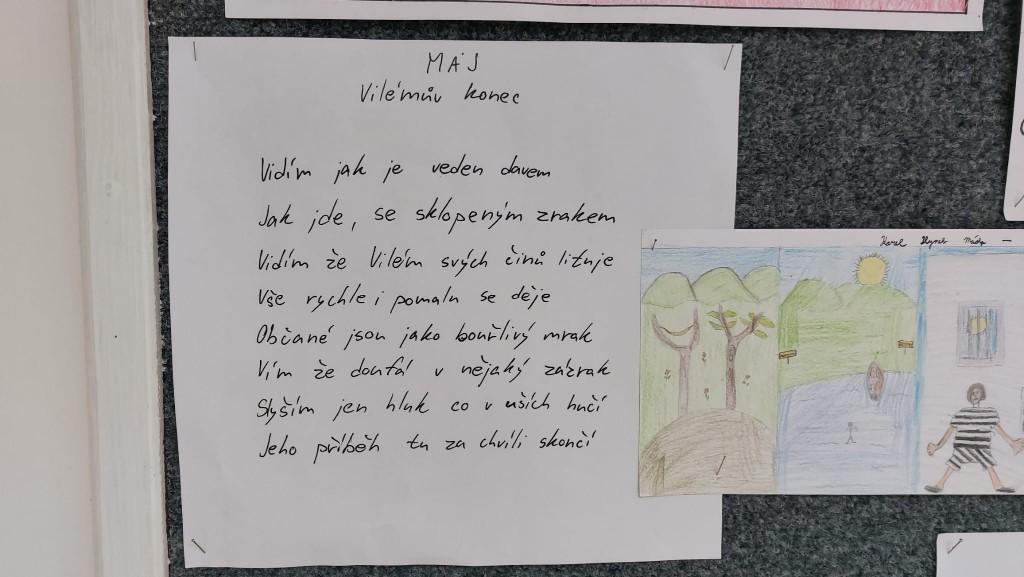 MÁJ
Vilémův konec
Vidím jak je veden davem
Jak jde, se sklopeným zrakem
Vidím že Vilém svých činů lituje
Vše rychle i pomalu se děje
Občané jsou jako bouřlivý mrak
Vím že doufá v nějaký zázrak
Slyším jen hluk co v uších hučí
Jeho příběh tu za chvíli skončí
Karel Hynek Mácha –